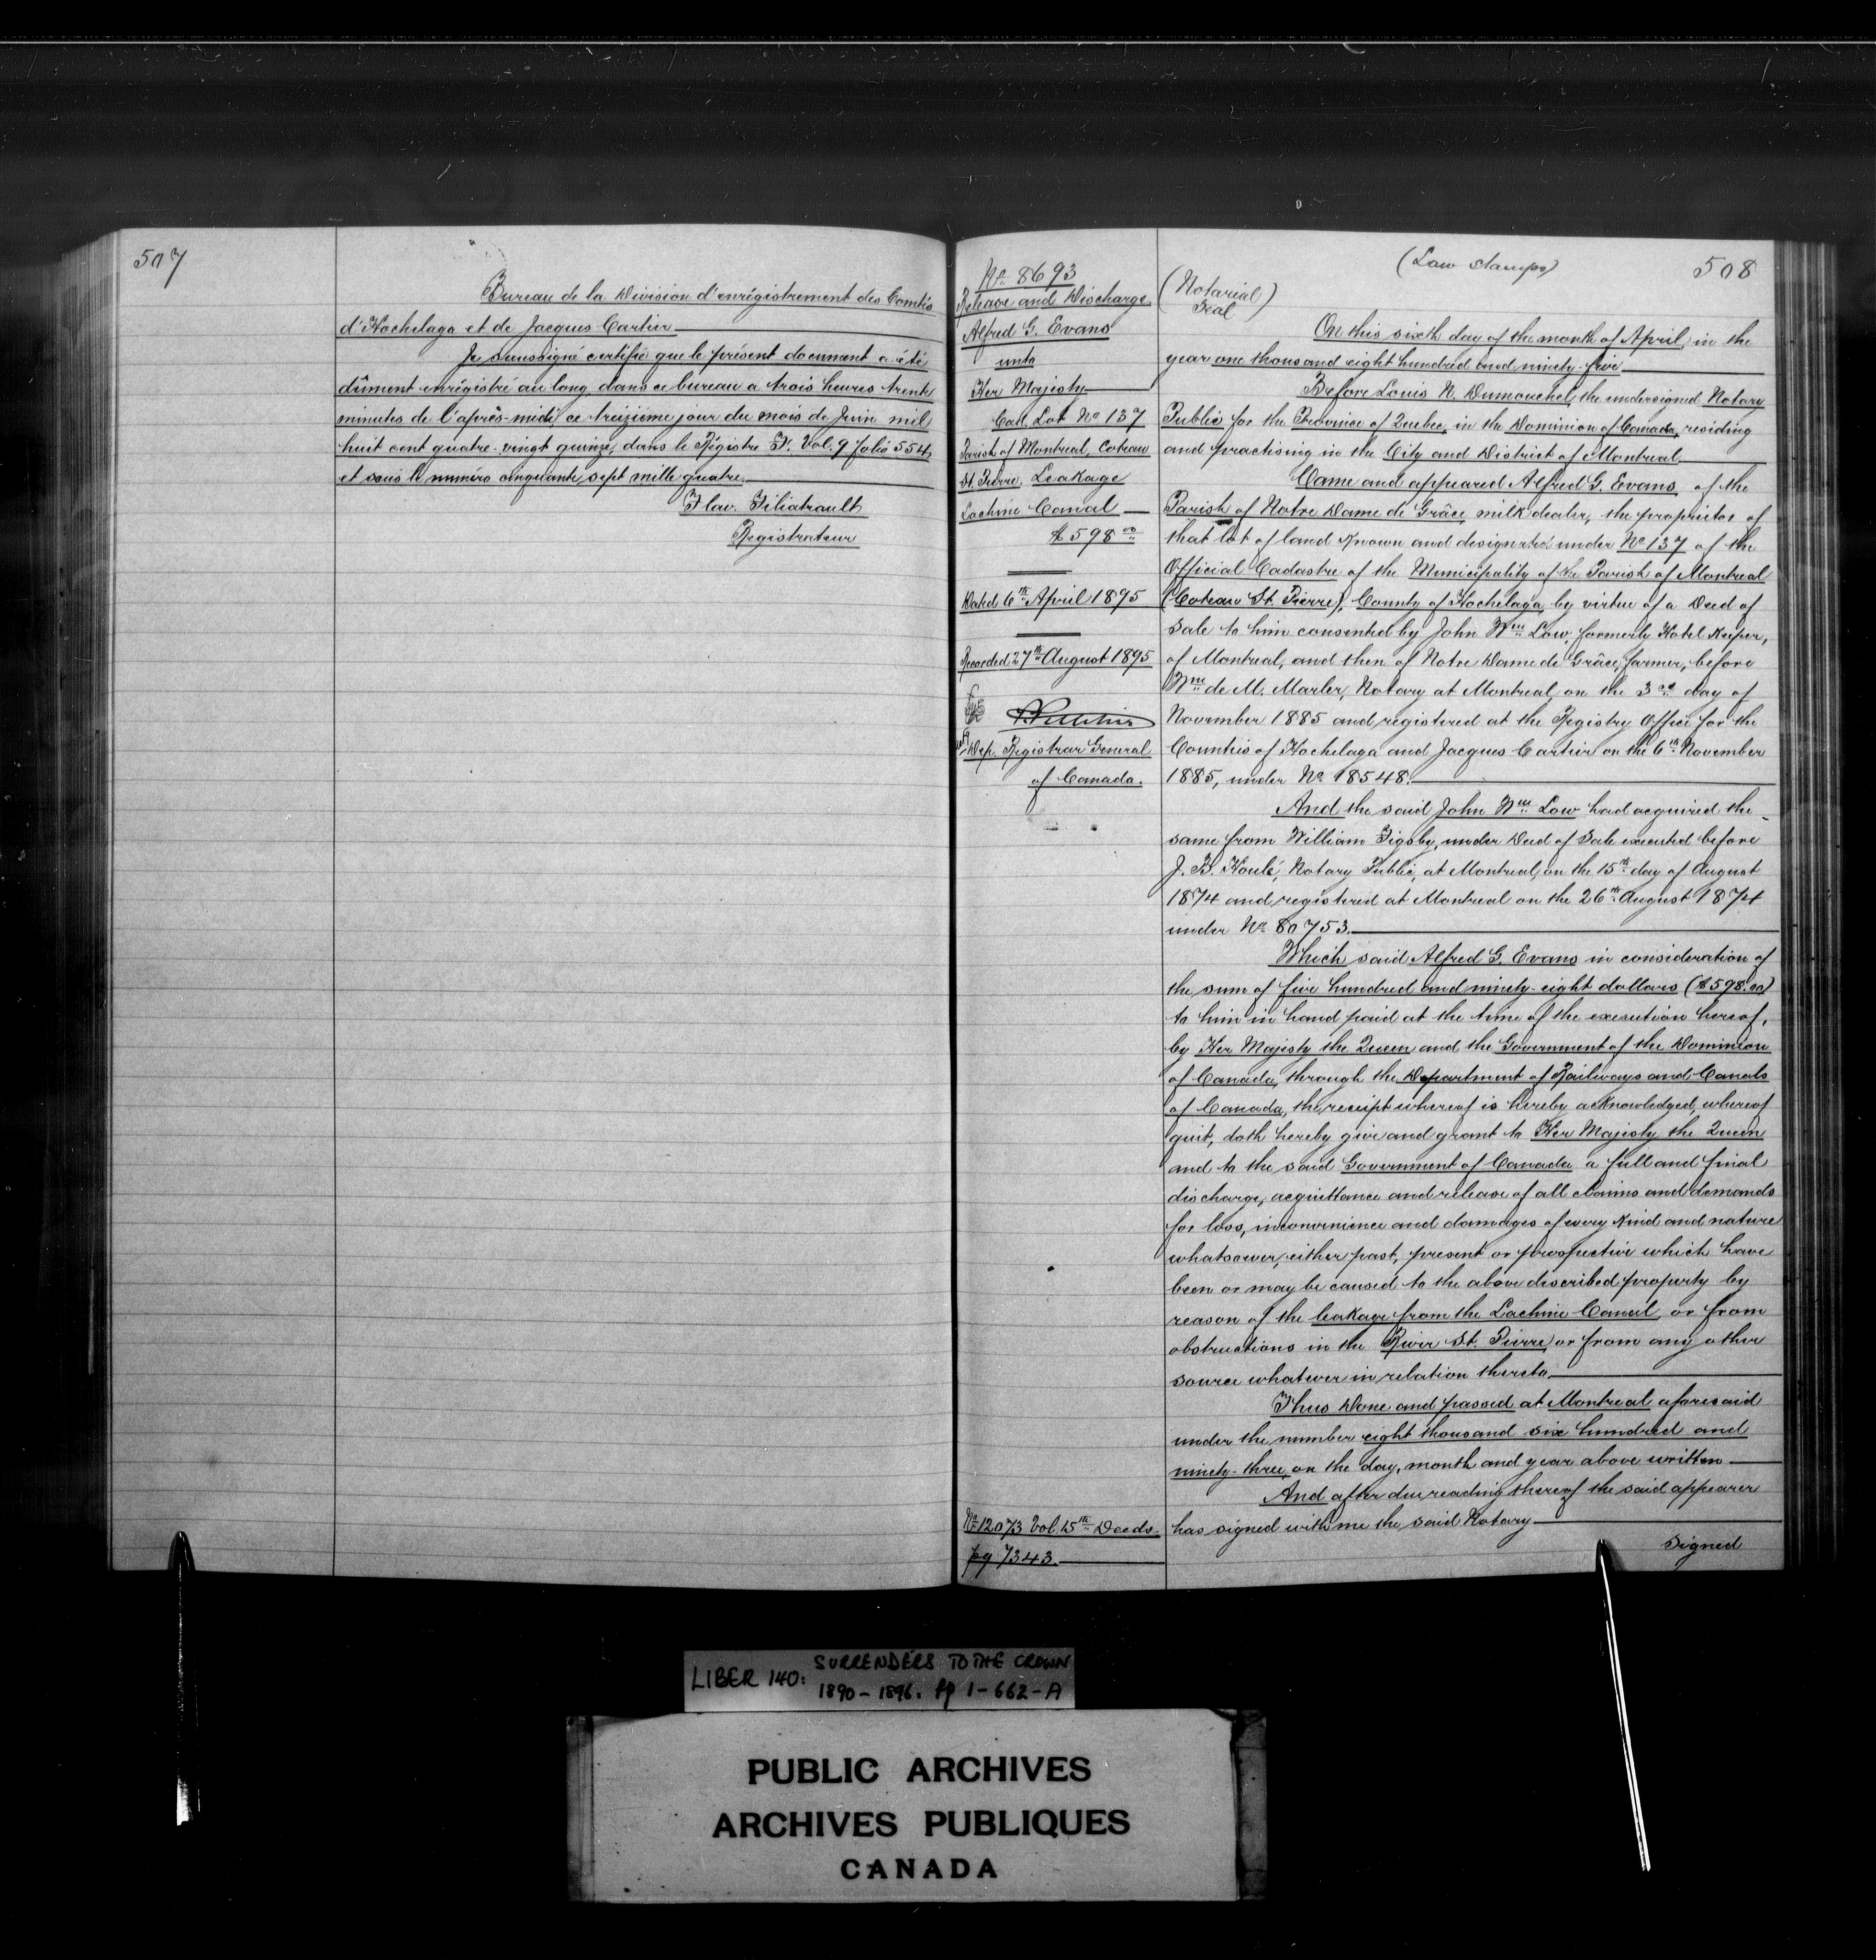 507
Bureau de la Division d'enrégistrement des Comtés
d'Hochelaga et de Jacques Cartier
Je soussigné certifie que le présent document a été
dûment enrégistré au long, dans ce bureau a trois heures trente
minutes de l'après-midi ce treizième jour du mois de Juin mil
huit cent quatre-vingt quinze, dans le Régistre F. Vol. 9 folio 554
et sous le numéro cinquante sept mille quatre.
Flav. Filiatrault
Registrateur
508
(Law Stamps)
(Notarial
Seal)
No. 8693
Release and Discharge
Alfred G. Evans
unto
Her Majesty
Cad. Lot No 137
Parish of Montreal, Coteau
St. Pierre, Leakage
Lachine Canal
$598.00
Dated 6th April 1895
Recorded 27th August 1895
Dep. Registrar General
of Canada.
No 12073 Vol. 15th Deeds
pg 7343.
On this sixth day of the month of April, in the
year one thousand eight hundred and ninety-five
Before Louis N. Dumouchel, the undersigned Notary
Public for the Province of Quebec, in the Dominion of Canada, residing
and practising in the City and District of Montreal.
Came and appeared Alfred G. Evans, of the
Parish of Notre Dame de Grâce, milk dealer, the proprietor of
that lot of land known and designated under No 137 of the
Official Cadastre of the Municipality of the Parish of Montreal
(Coteau St. Pierre), County of Hochelaga, by virtue of a Deed of
Sale to him consented by John Wm. Low, formerly Hotel Keeper,
of Montreal, and then of Notre Dame de Grâce, farmer, before
Wm. de M. Marler, Notary at Montreal, on the 3rd day of
November 1885 and registered at the Registry Office for the
Counties of Hochelaga and Jacques Cartier on the 6th November
1885, under No 18548.
And the said John Wm. Low had acquired the
same from William Bigsby, under Deed of Sale executed before
J. B. Houlé, Notary Public, at Montreal, on the 15th day of August
1874 and registered at Montreal on the 26th August 1874
under No 80753.
Which said Alfred G. Evans in consideration of
the sum of five hundred and ninety-eight dollars ($598.00)
to him in hand paid at the time of the execution hereof,
by Her Majesty the Queen and the Government of the Dominion
of Canada, through the Department of Railways and Canals
of Canada, the receipt whereof is hereby acknowledged, whereof
quit, doth hereby give and grant to Her Majesty the Queen
and to the said Government of Canada a full and final
discharge, acquittance and release of all claims and demands
for loss, inconvenience and damages of every kind and nature
whatsoever, either past, present or prospective which have
been or may be caused to the above described property by
reason of the leakage from the Lachine Canal, or from
obstructions in the River St. Pierre, or from any other
source whatever in relation thereto.
Thus Done and passed at Montreal aforesaid
under the number eight thousand six hundred and
ninety-three, on the day, month and year above written
And after due reading thereof the said appearer
has signed with me the said Notary
Signed
LIBER 140: SURRENDERS TO THE CROWN
1890-1896. pp 1-662-A
PUBLIC ARCHIVES
ARCHIVES PUBLIQUES
CANADA